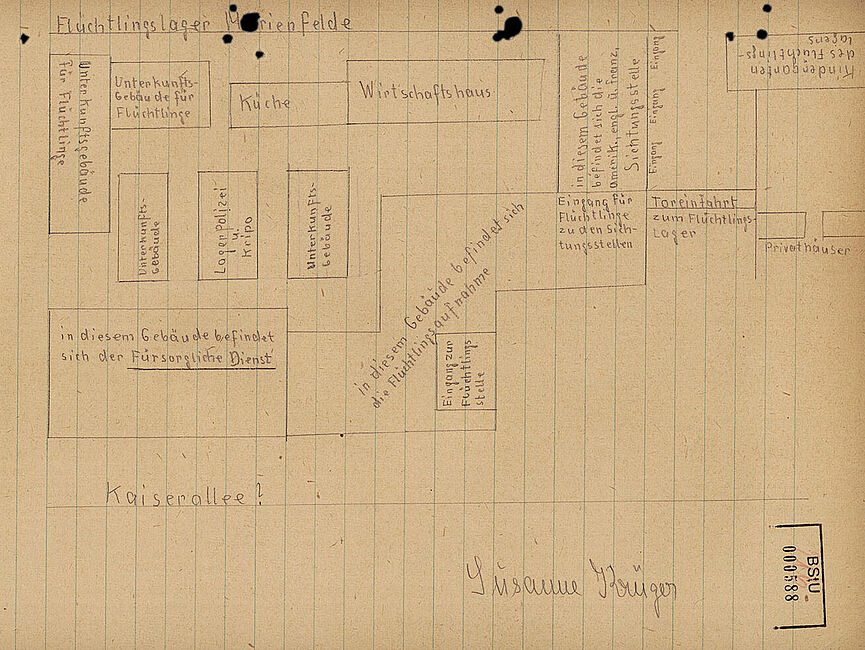 Flüchtlingslager Marienfelde
Unterkunftsgebäude
für Flüchtlinge
Unterkunfts-
Gebäude für
Flüchtlinge
Küche
Wirtschaftshaus
in diesem Gebäude
befindet sich die
amerik., engl. u. franz.
Sichtungsstelle
Eingang
Eingang
Eingang
Kindergarten
des Flüchtlings-
lagers
Unterkunfts-
gebäude
Lagerpolizei
u.
Kripo
Unterkunfts-
Gebäude
in diesem Gebäude befindet sich
die Flüchtlingsaufnahme
Eingang für
Flüchtlinge
zu den Sich-
tungsstellen
Toreinfahrt
zum Flüchtlings-
Lager
Privathäuser
in diesem Gebäude befindet
sich der Fürsorgliche Dienst
Eingang zur
Flüchtlings
stelle
Kaiserallee?
Susanne Krüger
BStU
000588